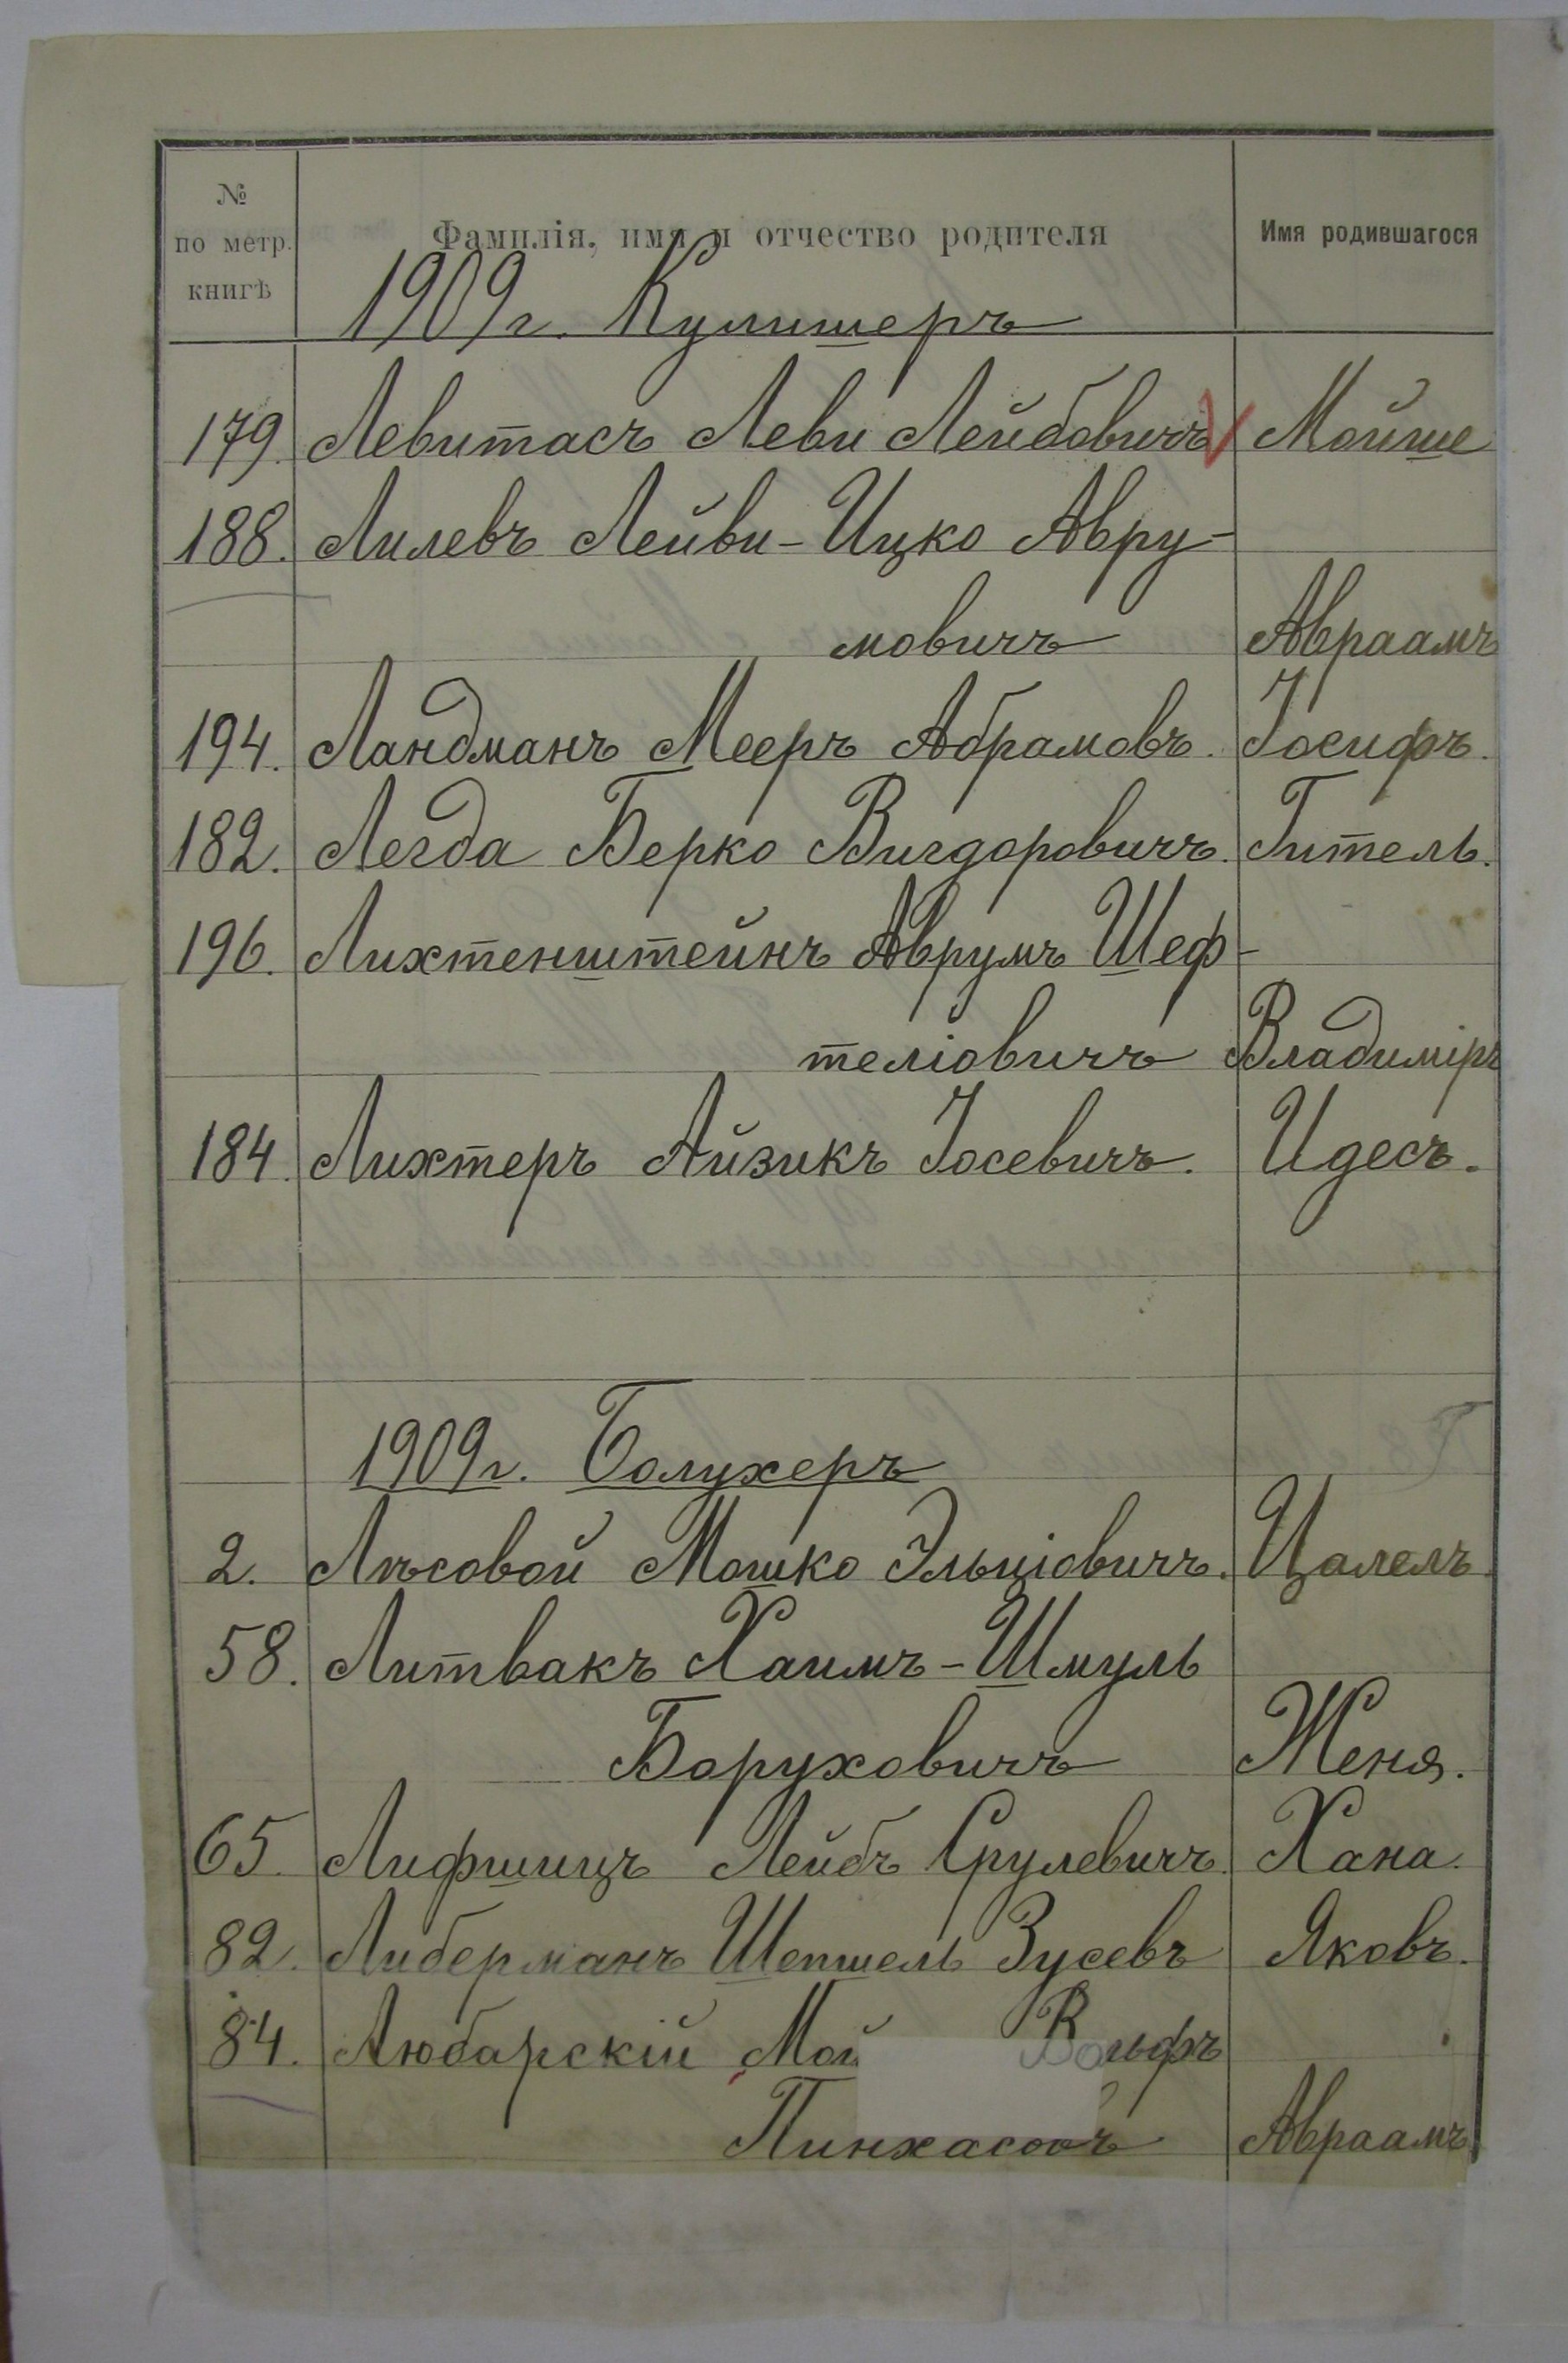 №
по метр.
книгѣ
Фамилія, имя и отчество родителя
Имя родившагося
1909 г. Кулишеръ
179. Левитасъ Леви Лейбовичъ Мойше
188. Лилевъ Лейви-Ицко Авру-
мовичъ Авраамъ
194. Ландманъ Мееръ Абрамовъ. Іосифъ.
182. Легда Берко Вигдоровичъ. Гитель.
196. Лихтенштейнъ Аврумъ Шеф-
теліовичъ Владиміръ
184. Лихтеръ Айзикъ Іосевичъ. Идесъ.
1909 г. Болухеръ
2. Лѣсовой Мошко Эльціовичъ. Цалель.
58. Литвакъ Хаимъ-Шмуль
Боруховичъ Женя.
65. Лифшицъ Лейбъ Срулевичъ. Хана.
82. Либерманъ Шепшель Зусевъ Яковъ.
84. Любарскій Мой Вольфъ
Пинхасовъ Авраамъ